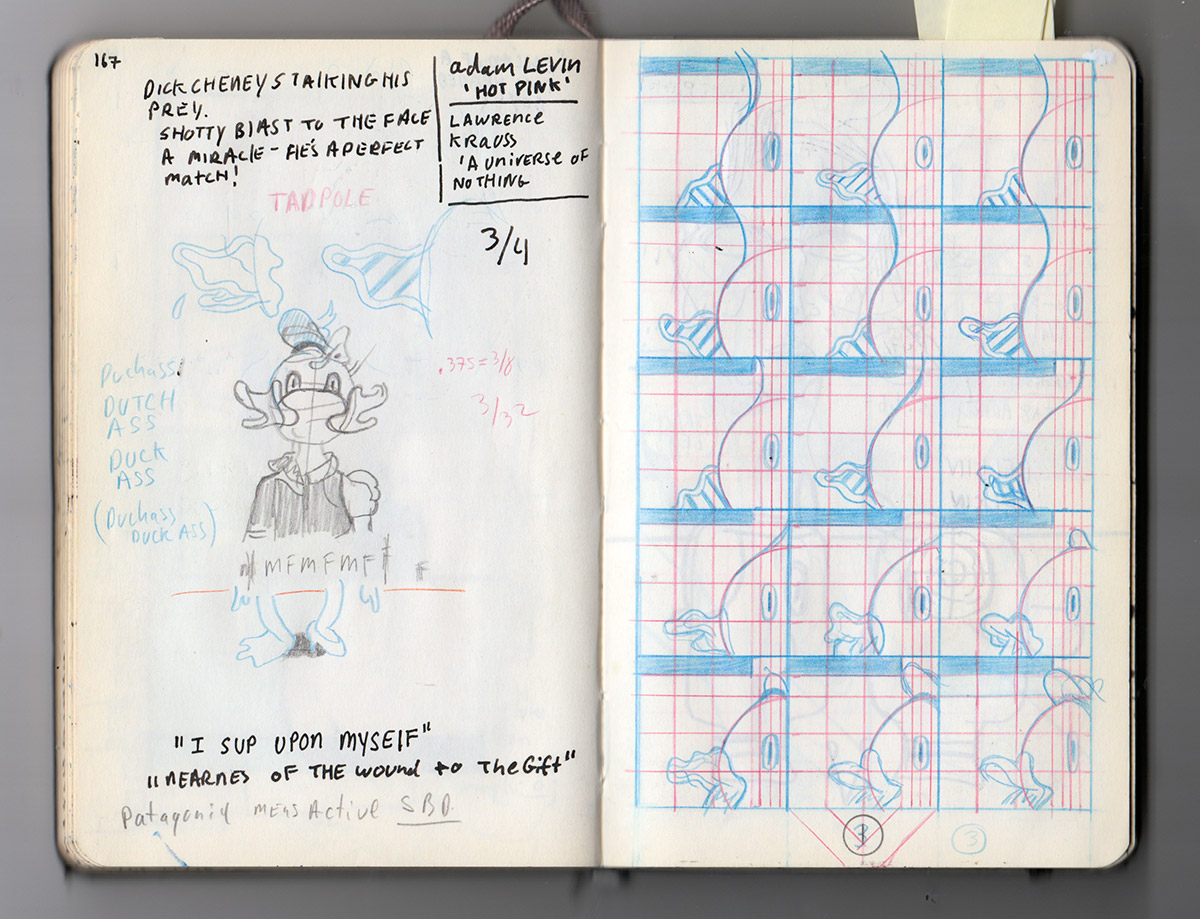 167
DICK CHENEY STALKING HIS
PREY.
SHOTTY BLAST TO THE FACE
A MIRACLE - HE'S A PERFECT
MATCH!
adam LEVIN
'HOT PINK'
LAWRENCE
KRAUSS
'A UNIVERSE OF
NOTHING
TADPOLE
3/4
.375=3/8
3/32
Duchass
DUTCH
ASS
DUCK
ASS
(Duchass
DUCK ASS)
MFMFMF
F
"I SUP UPON MYSELF"
"NEARNES OF THE WOUND to The Gift"
Patagonia mens Active SBD.
3
3